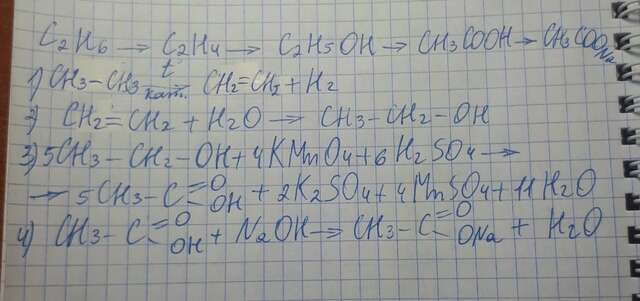 C2H6 → C2H4 → C2H5OH → CH3COOH → CH3COONa
1) CH3-CH3 t кат. → CH2=CH2 + H2
2) CH2=CH2 + H2O → CH3-CH2-OH
3) 5CH3-CH2-OH + 4KMnO4 + 6H2SO4 →
→ 5CH3-C=O OH + 2K2SO4 + 4MnSO4 + 11H2O
4) CH3-C=O OH + NaOH → CH3-C=O ONa + H2O